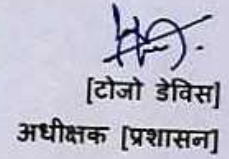 [टोजो डेविस]
अधीक्षक [प्रशासन]